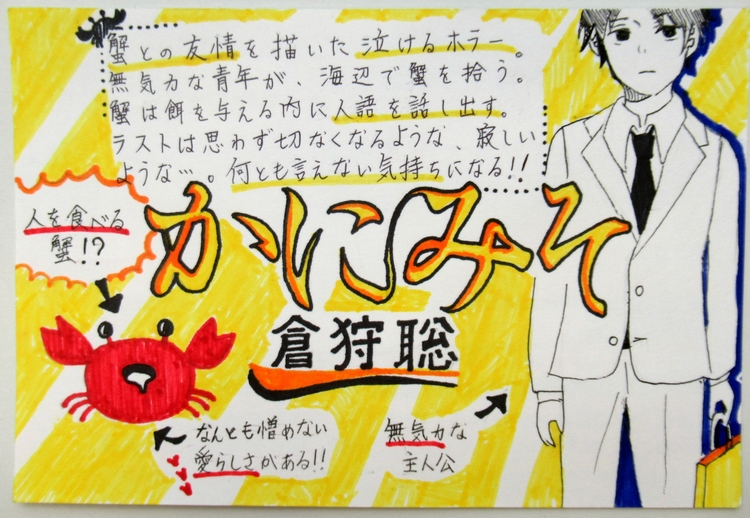 蟹との友情を描いた泣けるホラー。
無気力な青年が、海辺で蟹を拾う。
蟹は餌を与える内に人語を話し出す。
ラストは思わず切なくなるような、寂しい
ような…。何とも言えない気持ちになる!!
人を食べる
蟹!?
かにみそ
倉狩聡
なんとも憎めない
愛らしさがある!!
無気力な
主人公